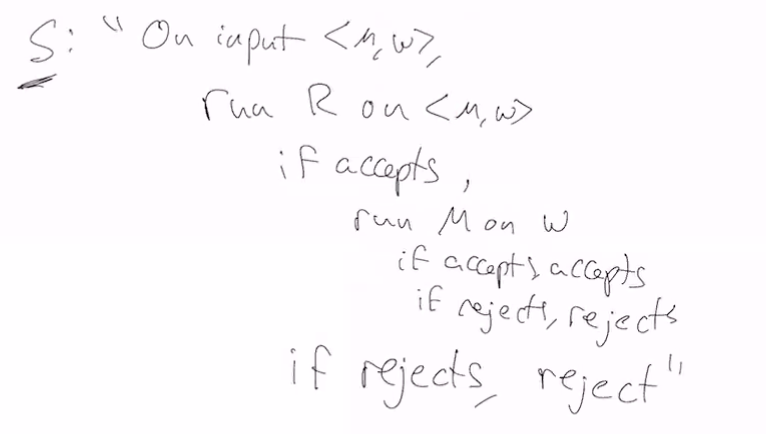 S: "On input <M,w>,
run R on <M,w>
if accepts,
run M on w
if accepts, accepts
if rejects, rejects
if rejects, reject"